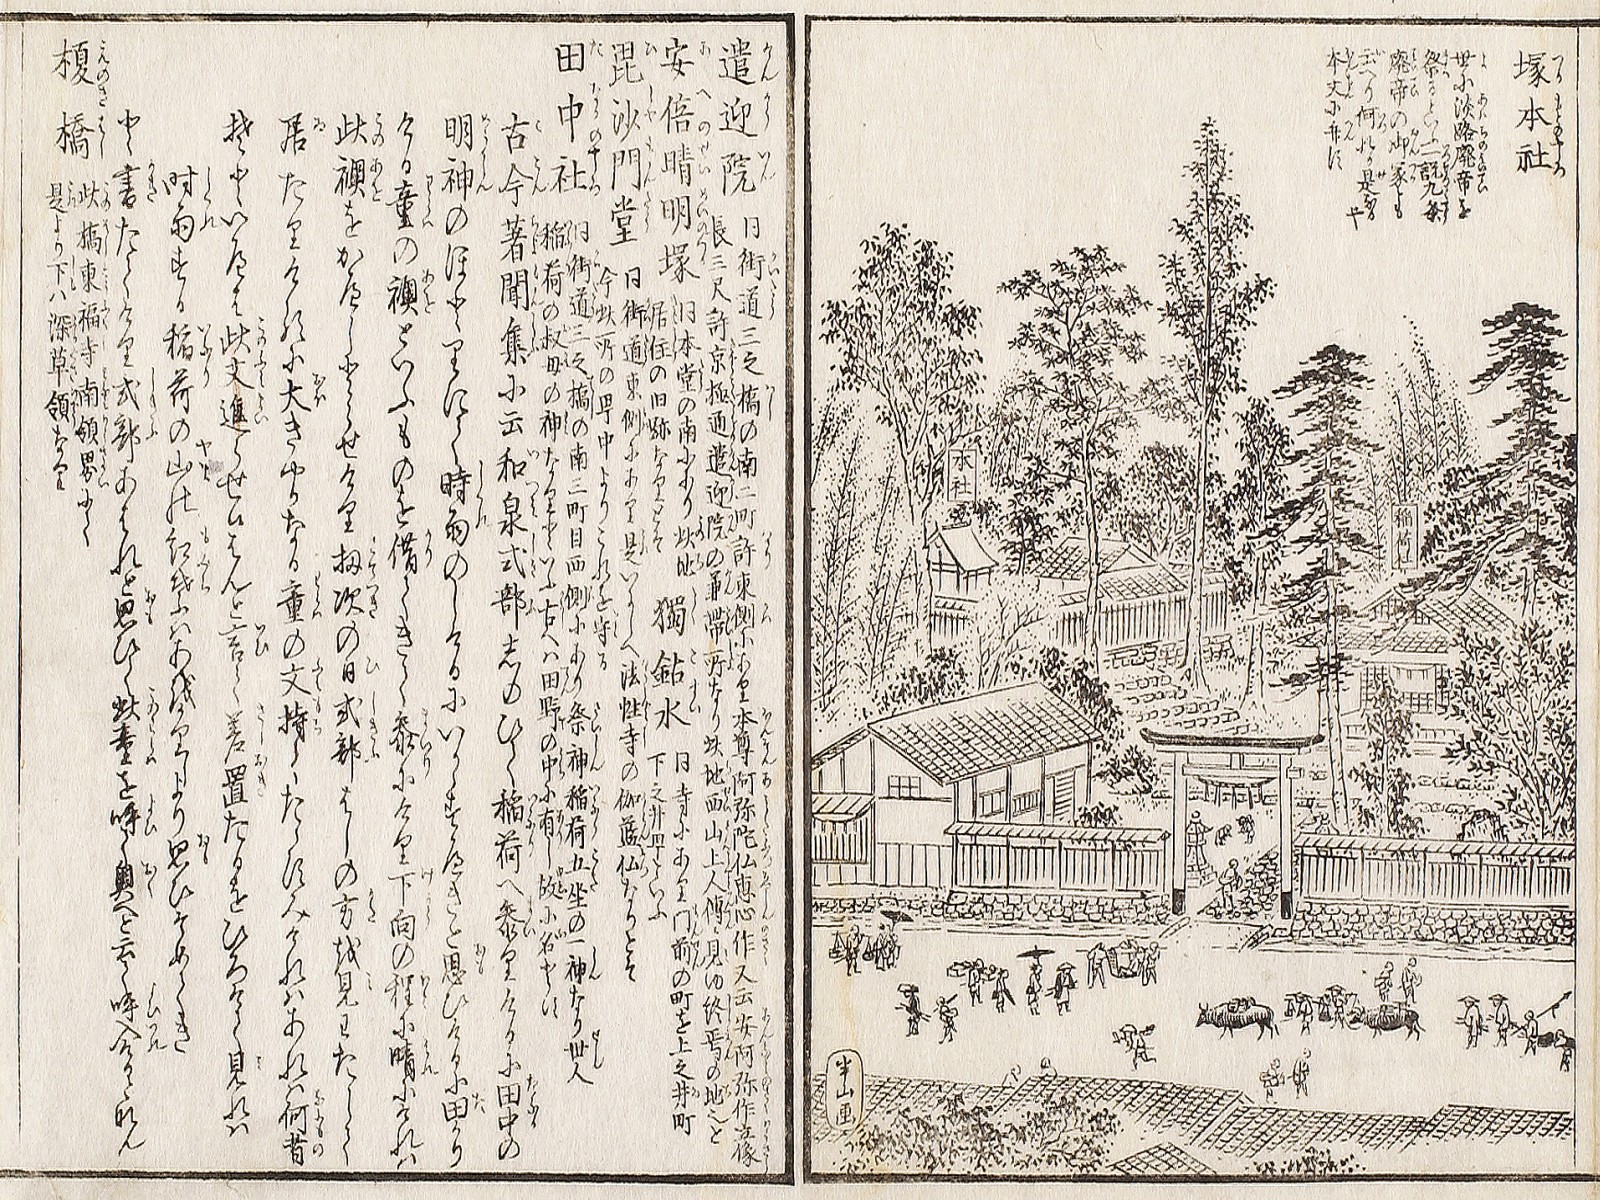 塚本社
世に淡路廃帝を
祭るといふ一説九条
廃帝の御冢とも
云へり何れか是なるや
本文に弁ず
本社
稲荷社
半山画
遣迎院
同街道三之橋の南二町許東側にあり本尊阿弥陀仏恵心作又云安阿弥作立像
長三尺許京極通遣迎院の兼帯所なり此地西山上人
安倍晴明塚
同本堂の南にあり此地
居住の旧跡なりとぞ
獨鈷水
同寺にあり門前の町を上之井町
下之井町といふ
毘沙門堂
同街道東側にあり是いにしへ法性寺の伽藍仏なりとぞ
今此所の町中よりこれを守る
田中社
同街道三之橋の南三町目西側にあり祭神稲荷五坐の一神なり世人
稲荷の叔母の神なりといふ古へは田野の中に有し故に名とす
古今著聞集に云和泉式部しのびて稲荷へ参りけるに田中の
明神のほどりにて時雨のしけるにいかゞすべきと思ひけるに田かり
ける童の襖といふものを借てきて参にけり下向の程に晴にければ
此襖をかへしとらせけり扨次の日式部はしの方を見出したるに
大きやかなる童の文持てたゝずみければあれは何者
ぞといへば此文進らせ候はんと言て差置たるをひろげて見れば
時雨する稲荷の山のもみぢばはあをかりしより思ひそめてき
と書たりけり式部あはれと思ひて此童を呼て奥へと云て呼入けるとなん
榎橋
此橋東福寺南領界にて
是より下ハ深草領なり